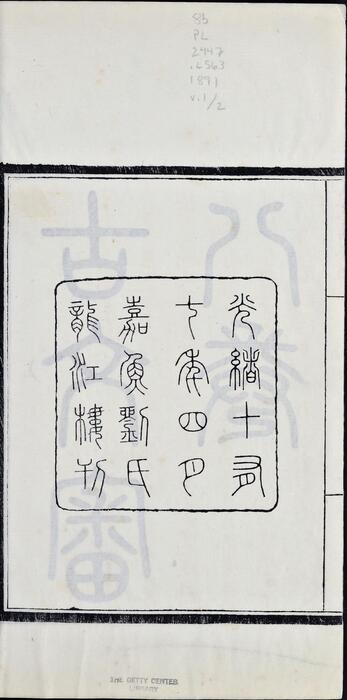 85
PL
2447
.L563
1891
v.1/2
光緒十有
七年四月
嘉魚劉氏
龍江樓刊
THE GETTY CENTER
LIBRARY